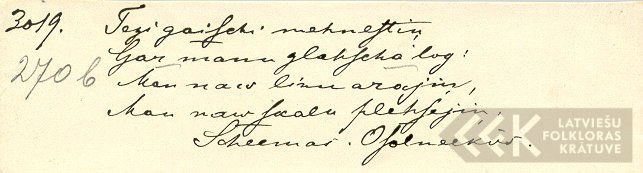 3019. Tezi gaischi mehnestiņ
270 b Gar manu glahschā log:
Man naw linu arajiņ,
Man naw skalu plehsejiņ,
Scheemas. Osolneekōs.
LATVIEŠU
FOLKLORAS
KRĀTUVE